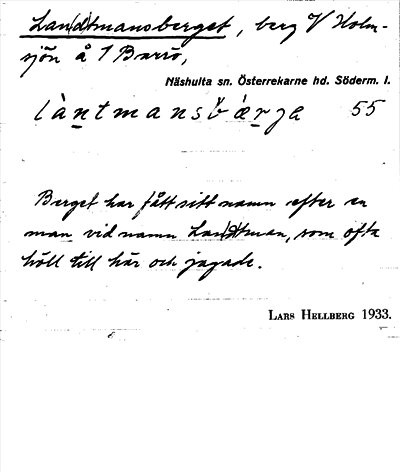 Lan(d)tmansberget, berg V Holm-
sjön å 1 Barrö,
Näshulta sn. Österrekarne hd. Söderm. l.
làntmansbærga 55
Berget har fått sitt namn efter en
man vid namn Lan(d)tman, som ofta
höll till här och jagade.
LARS HELLBERG 1933.